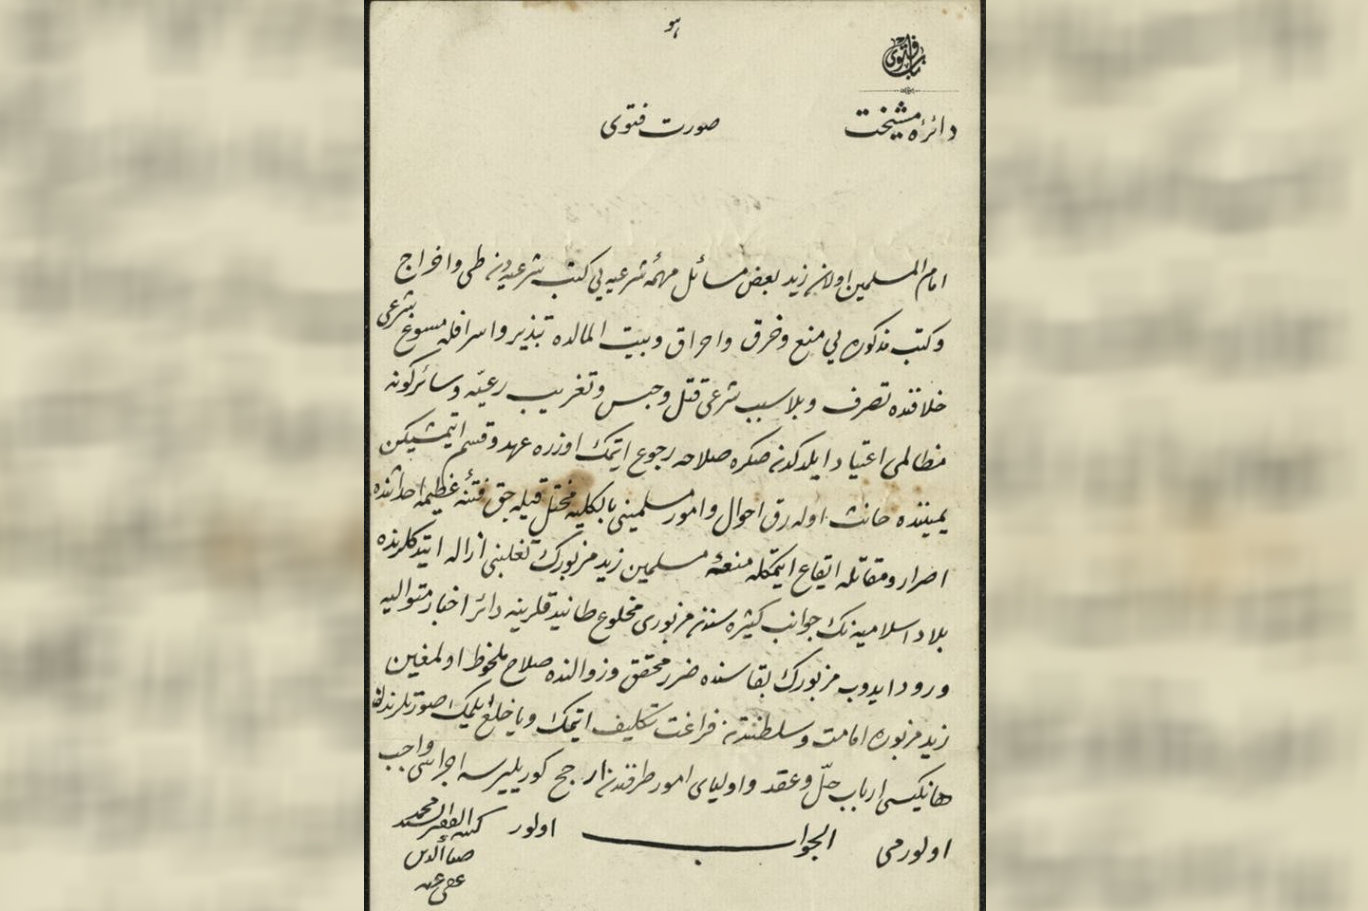 هو
باب فتوى
دائرۀ مشیخت
صورت فتوى
امام المسلمین اولان زید بعض مسائل مهمۀ شرعیه یی كتب شرعیه دن طی و اخراج
و كتب مذكوره یی منع و خرق و احراق و بیت المالده تبذیر و اسراف له مسوغ شرعی
خلافنده تصرف و بلا سبب شرعی قتل و حبس و تغریب رعیه و سائر كونه
مظالمی اعتیاد ایلدكدن صكره صلاحه رجوع ایتمك اوزره عهد و قسم ایتمشیكن
یمیننده حانث اوله رق احوال و امور مسلمینی بالكلیه مختل قیله جق فتنۀ عظیمه احداثنده
اصرار و مقاتله ایقاع ایتمكله منعۀ مسلمین زید مزبورك تغلبنی ازاله ایتدكلرنده
بلاد اسلامیه نك جوانب كثیره سندن مزبوری مخلوع طانیدقلرینه دائر اخبار متوالیه
ورود ایدوب مزبورك بقاسنده ضرر محقق و زوالنده صلاح ملحوظ اولمغین
زید مزبوره امامت و سلطنتدن فراغت تكلیف ایتمك ویا خلع ایلمك صورتلرندن
هانكیسی ارباب حلّ و عقد و اولیای امور طرفندن ارجح كوریلیرسه اجراسی واجب
اولورمی الجواب اولور
كتبه الفقیر السید محمد
ضیاء الدین
عفی عنه